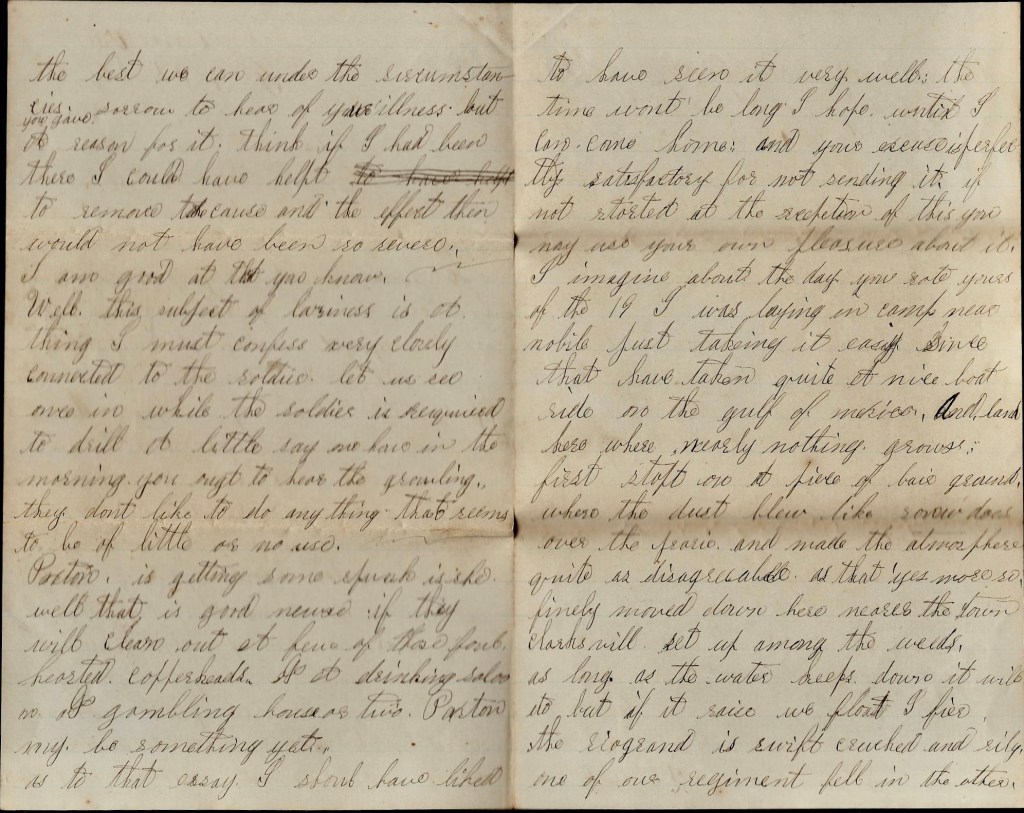 the best we can under the sircumstan
cies. sorrow to hear of your illness. but
you gave
no reason for it. think if I had been
there I could have helpt to have helpt
to remove the cause and the effect then
would not have been so severe.
I am good at that you know.
Well. this subject of laziness is a
thing I must confess very closely
connected to the soldier. let us see
once in while the soldier is required
to drill a little say one hour in the
morning you ougt to hear the growling.
they dont like to do any thing that seems
to be of little or no use.
Paxton. is getting some spunk is she.
well that is good newse if they
will clean out a few of those foul
hearted copperheads. & a drinking saloo
n. & gambling house or two. Paxton
my. be something yet.
as to that essay I shoul have liked
to have seen it very well: the
time wont be long I hope. until I
can come home: and your excuse is perfec
tly satisfactory for not sending it. if
not started at the reception of this you
may use your own pleasure about it.
I imagine about the day you rote yours
of the 19 I was laying in camp near
mobile just takeing it easy. Since
that have taken quite a nice boat
ride on the gulf of mexico. And land
here where nearly nothing grows:
first stopt on a piece of baie ground.
where the dust blew like snow does
over the prarie. and made the atmosphere
quite as disagreeable as that yes more so.
finely moved down here nearer the town
clarksvill. set up among the weeds.
as long as the water keeps down it will
do but if it raise we float I fier.
the riogrand is swift crucked and rily.
one of our regiment fell in the other.